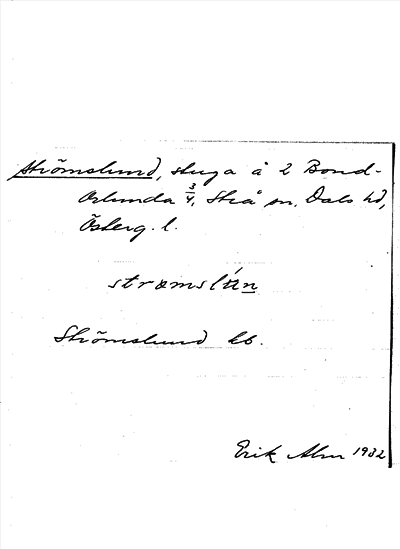 Strömslund, stuga å 2 Bond-
Orlunda 3/4, Strå sn, Dals hd,
Österg. l.
strömslún
Strömslund kb.
Erik Alm 1932